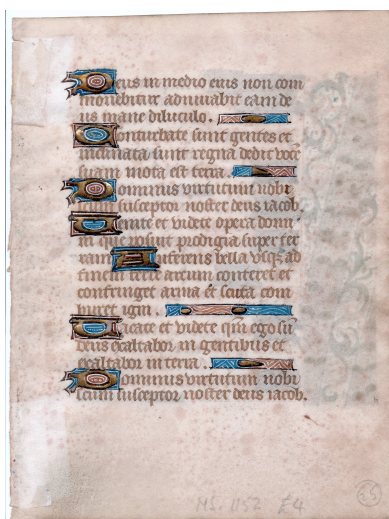 Deus in medio eius non com
mouebitur adiuuabit eam de
us mane diluculo.
Conturbate sunt gentes et
inclinata sunt regna dedit voce
suam mota est terra.
Dominus virtutum nobi
cum susceptor noster deus iacob.
Uenite et videte opera domi
ni que posuit prodigia super ter
ram Auferens bella vsq3 ad
finem terre arcum conteret et
confringet arma et scuta com
buret igni.
Uacate et videte qm ego su
deus exaltabor in gentibus et
exaltabor in terra.
Dominus virtutum nobi
cum susceptor noster deus iacob.
MS. 1152 £4